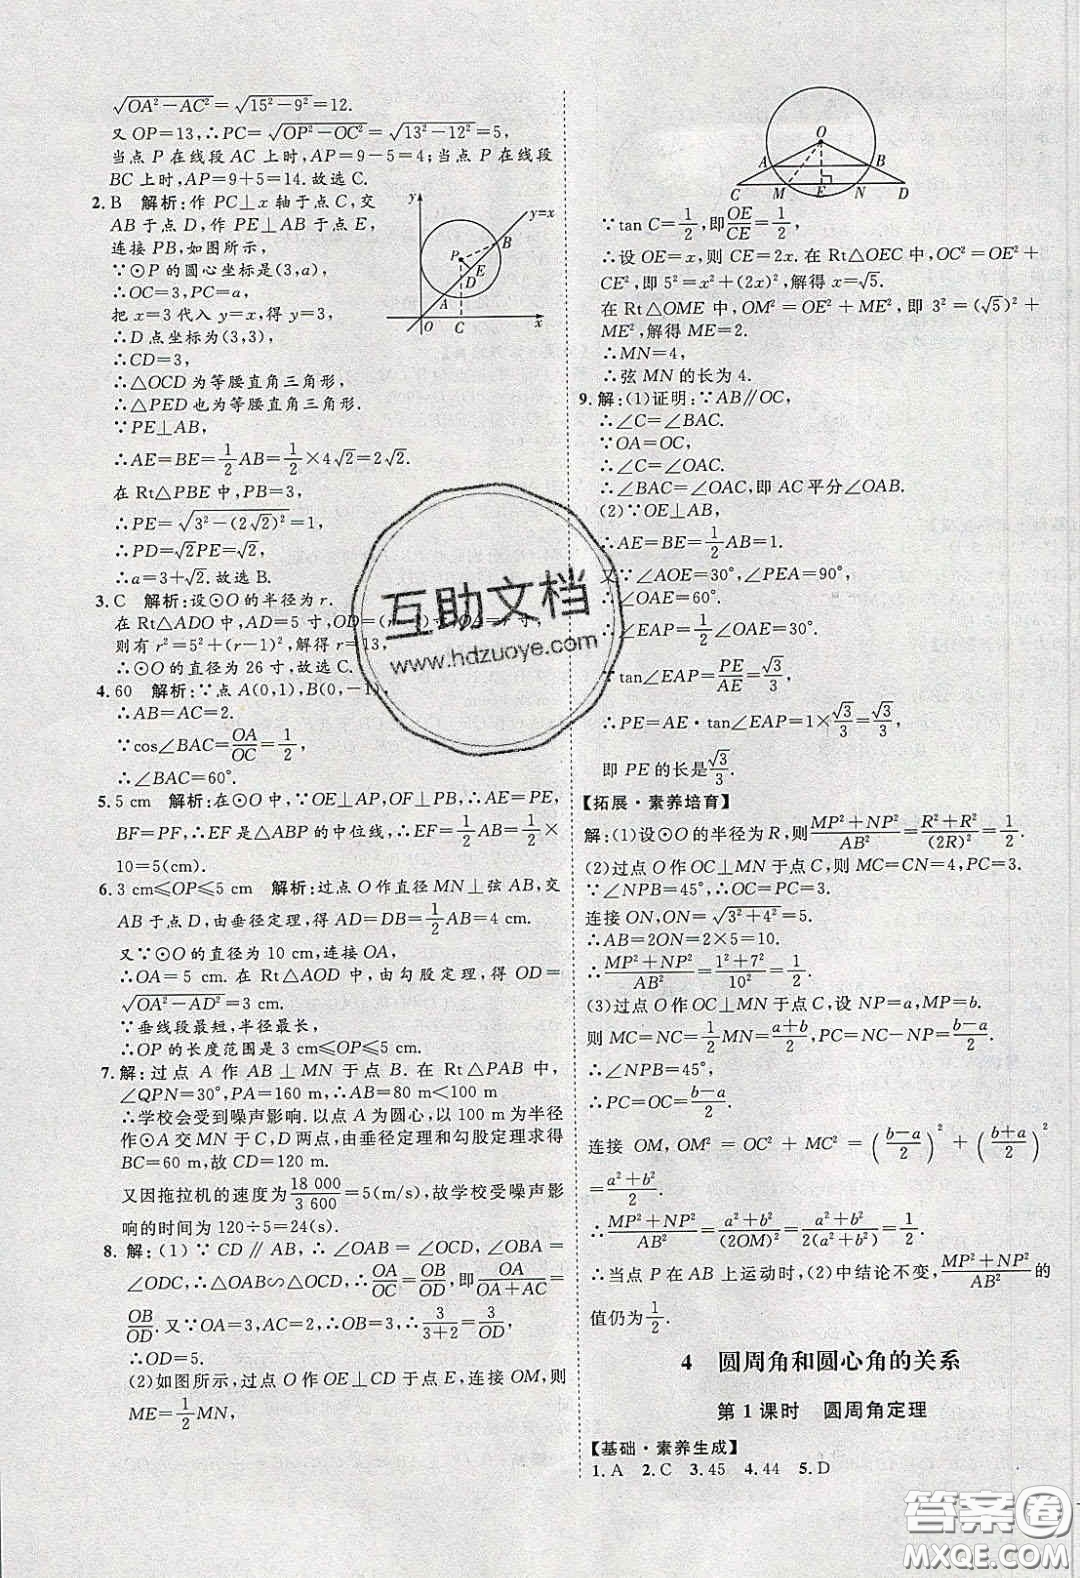 √(OA²−AC²)=√(15²−9²)=12.
又 OP=13,∴PC=√(OP²−OC²)=√(13²−12²)=5,
当点 P 在线段 AC 上时,AP=9−5=4;当点 P 在线段
BC 上时,AP=9+5=14.故选 C.
2.B 解析:作 PC⊥x 轴于点 C,交
AB于点 D,作 PE⊥AB 于点 E,
连接 PB,如图所示,
∵⊙P 的圆心坐标是(3,a),
∴OC=3,PC=a,
把 x=3 代入 y=x,得 y=3,
∴D 点坐标为(3,3),
∴CD=3,
∴△OCD 为等腰直角三角形,
∴△PED 也为等腰直角三角形.
∵PE⊥AB,
∴AE=BE=1/2AB=1/2×4√2=2√2.
在 Rt△PBE 中,PB=3,
∴PE=√(3²−(2√2)²)=1,
∴PD=√2PE=√2,
∴a=3+√2.故选 B.
3.C 解析:设⊙O 的半径为 r.
在 Rt△ADO 中,AD=5 寸,OD=(r
则有 r²=5²+(r−1)²,解得 r=13,
∴⊙O 的直径为 26 寸,故选 C.
4.60 解析:∵点 A(0,1),B(0,−1),
∴AB=AC=2.
∵cos∠BAC=OA/OC=1/2,
∴∠BAC=60°.
5.5 cm 解析:在⊙O 中,∵OE⊥AP,OF⊥PB,∴AE=PE,
BF=PF,∴EF 是△ABP 的中位线,∴EF=1/2AB=1/2×
10=5(cm).
6.3 cm≤OP≤5 cm 解析:过点 O 作直径 MN⊥弦 AB,交
AB 于点 D,由垂径定理,得 AD=DB=1/2AB=4 cm.
又∵⊙O 的直径为 10 cm,连接 OA,
∴OA=5 cm. 在 Rt△AOD 中,由勾股定理,得 OD=
√(OA²−AD²)=3 cm.
∵垂线段最短,半径最长,
∴OP 的长度范围是 3 cm≤OP≤5 cm.
7.解:过点 A 作 AB⊥MN 于点 B. 在 Rt△PAB 中,
∠QPN=30°,PA=160 m,∴AB=80 m<100 m,
∴学校会受到噪声影响.以点 A 为圆心,以 100 m 为半径
作⊙A 交 MN 于 C,D 两点,由垂径定理和勾股定理求得
BC=60 m,故 CD=120 m.
又因拖拉机的速度为18 000/3 600=5(m/s),故学校受噪声影
响的时间为 120÷5=24(s).
8. 解:(1)∵CD∥AB,∴∠OAB=∠OCD,∠OBA=
∠ODC,∴△OAB∽△OCD,∴OA/OC=OB/OD,即OA/(OA+AC)=
OB/OD. 又∵OA=3,AC=2,∴OB=3,∴3/(3+2)=3/OD,
∴OD=5.
(2)如图所示,过点 O 作 OE⊥CD 于点 E,连接 OM,则
ME=1/2MN,
y
y=x
P
B
E
D
A
O
C
x
O
A
B
C
M
E
N
D
∵tan C=1/2,即OE/CE=1/2,
∴设 OE=x,则 CE=2x. 在 Rt△OEC 中,OC²=OE²+
CE²,即 5²=x²+(2x)²,解得 x=√5.
在 Rt△OME 中,OM²=OE²+ME²,即 3²=(√5)²+
ME²,解得 ME=2.
∴MN=4,
∴弦 MN 的长为 4.
9.解:(1)证明:∵AB∥OC,
∴∠C=∠BAC.
∵OA=OC,
∴∠C=∠OAC.
∴∠BAC=∠OAC,即 AC 平分∠OAB.
(2)∵OE⊥AB,
∴AE=BE=1/2AB=1.
又∵∠AOE=30°,∠PEA=90°,
∴∠OAE=60°.
∴∠EAP=1/2∠OAE=30°.
∵tan∠EAP=PE/AE=√3/3,
∴PE=AE·tan∠EAP=1×√3/3=√3/3,
即 PE 的长是√3/3.
【拓展·素养培育】
解:(1)设⊙O 的半径为 R,则(MP²+NP²)/AB²=(R²+R²)/(2R)²=1/2.
(2)过点 O 作 OC⊥MN 于点 C,则 MC=CN=4,PC=3.
∵∠NPB=45°,∴OC=PC=3.
连接 ON,ON=√(3²+4²)=5.
∴AB=2ON=2×5=10.
∴(MP²+NP²)/AB²=(1²+7²)/10²=1/2.
(3)过点 O 作 OC⊥MN 于点 C,设 NP=a,MP=b.
则 MC=NC=1/2MN=(a+b)/2,PC=NC−NP=(b−a)/2.
∵∠NPB=45°,
∴PC=OC=(b−a)/2.
连接 OM,OM²=OC²+MC²=((b−a)/2)²+((b+a)/2)²
=(a²+b²)/2.
∴(MP²+NP²)/AB²=(a²+b²)/(2OM)²=(a²+b²)/2(a²+b²)=1/2.
∴当点 P 在 AB 上运动时,(2)中结论不变,(MP²+NP²)/AB²的
值仍为1/2.
4 圆周角和圆心角的关系
第 1 课时 圆周角定理
【基础·素养生成】
1.A 2.C 3.45 4.44 5.D
互助文档
www.hdzuoye.com
答案圈
MXQE.COM